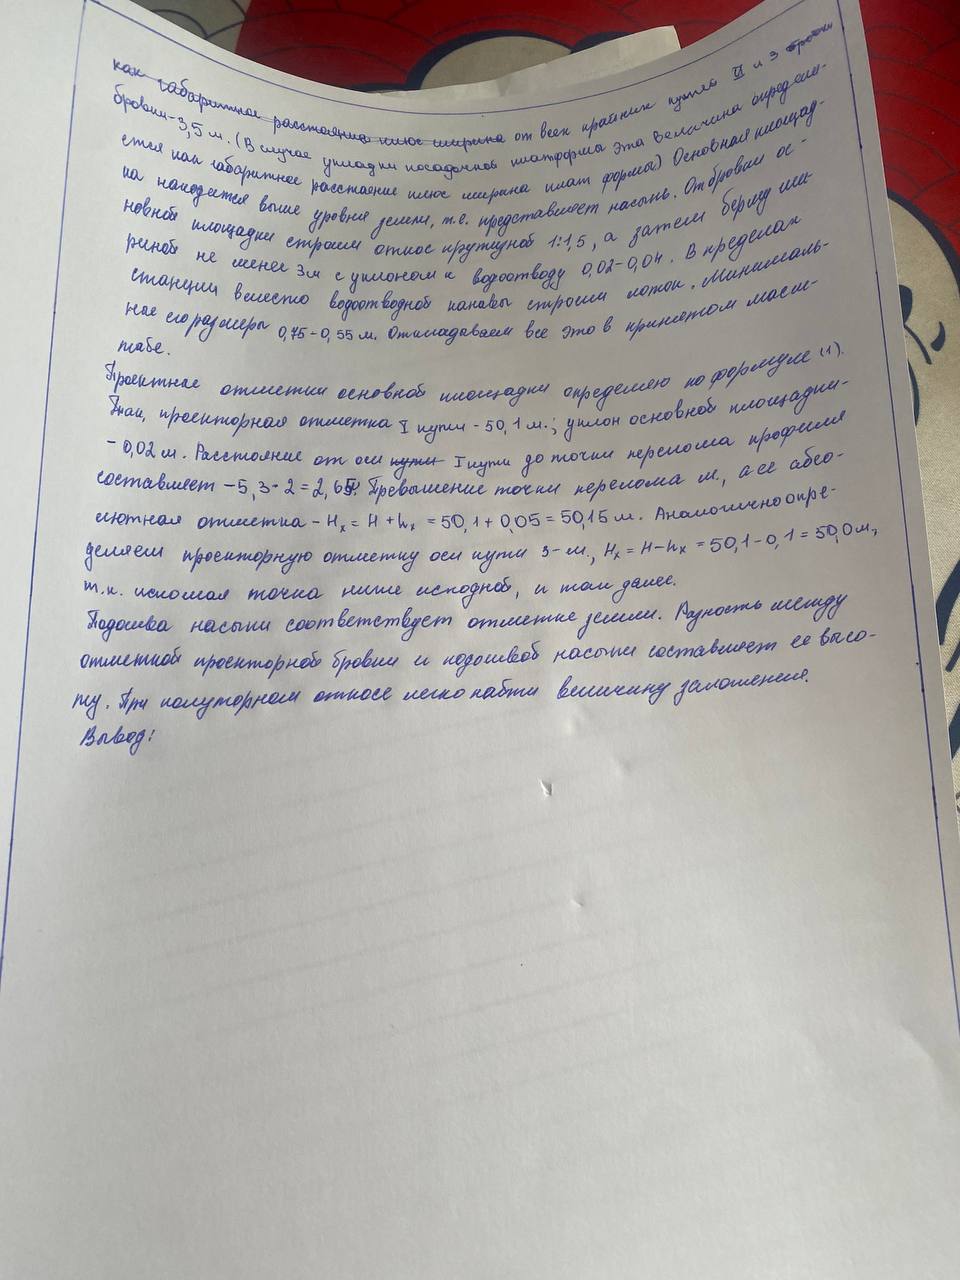 как габаритное расстояние плюс ширина от всех крайних путей VI и 3 бровки
бровки - 3,5 м. (В случае укладки посадочной платформы эта величина определя-
ется как габаритное расстояние плюс ширина платформы) Основная площад-
ка находится выше уровня земли, т.е. представляет насыпь. От бровки ос-
новной площадки строим откос крутизной 1:1,5, а затем берму ши-
риной не менее 3м с уклоном к водоотводу 0,02-0,04. В пределах
станции вместо водоотводной канавы строим лоток. Минималь-
ные его размеры 0,75-0,55 м. Откладываем все это в принятом масш-
табе.
Проектные отметки основной площадки определяю по формуле (1).
Так, проекторная отметка I пути - 50,1 м.; уклон основной площадки-
- 0,02 м. Расстояние от оси пути I пути до точки перелома профиля
составляет - 5,3 · 2 = 2,65 Превышение точки перелома м., а ее абсо-
лютная отметка - Hx = H + hx = 50,1 + 0,05 = 50,15 м. Аналогично опре-
деляем проекторную отметку оси пути 3 - м., Hx = H - hx = 50,1 - 0,1 = 50,0 м,
т.к. искомая точка ниже исходной, и так далее.
Подошва насыпи соответствует отметке земли. Разность между
отметкой проекторной бровки и подошвой насыпи составляет ее высо-
ту. При полуторном откосе легко найти величину заложения.
Вывод: